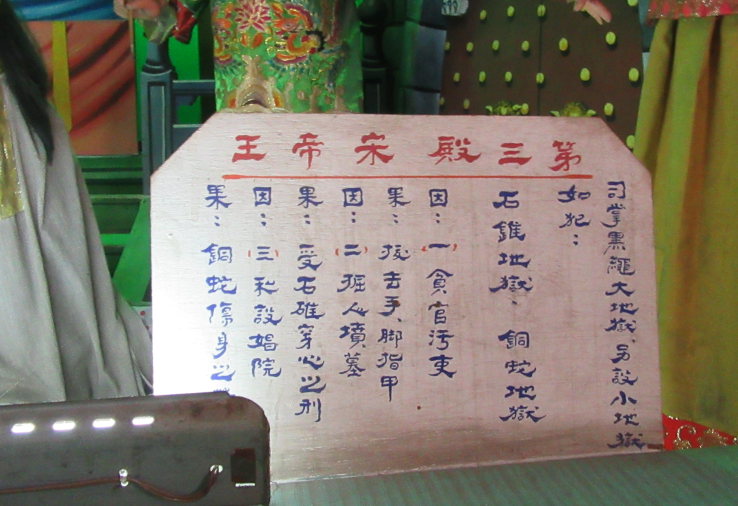 第三殿宋帝王
司掌黑繩大地獄、另設小地獄
如犯：
石錐地獄、銅蛇地獄
因：(一)貪官污吏
果：拔去手、脚指甲
因：(二)掘人墳墓
果：受石碓穿心之刑
因：(三)私設娼院
果：銅蛇傷身之